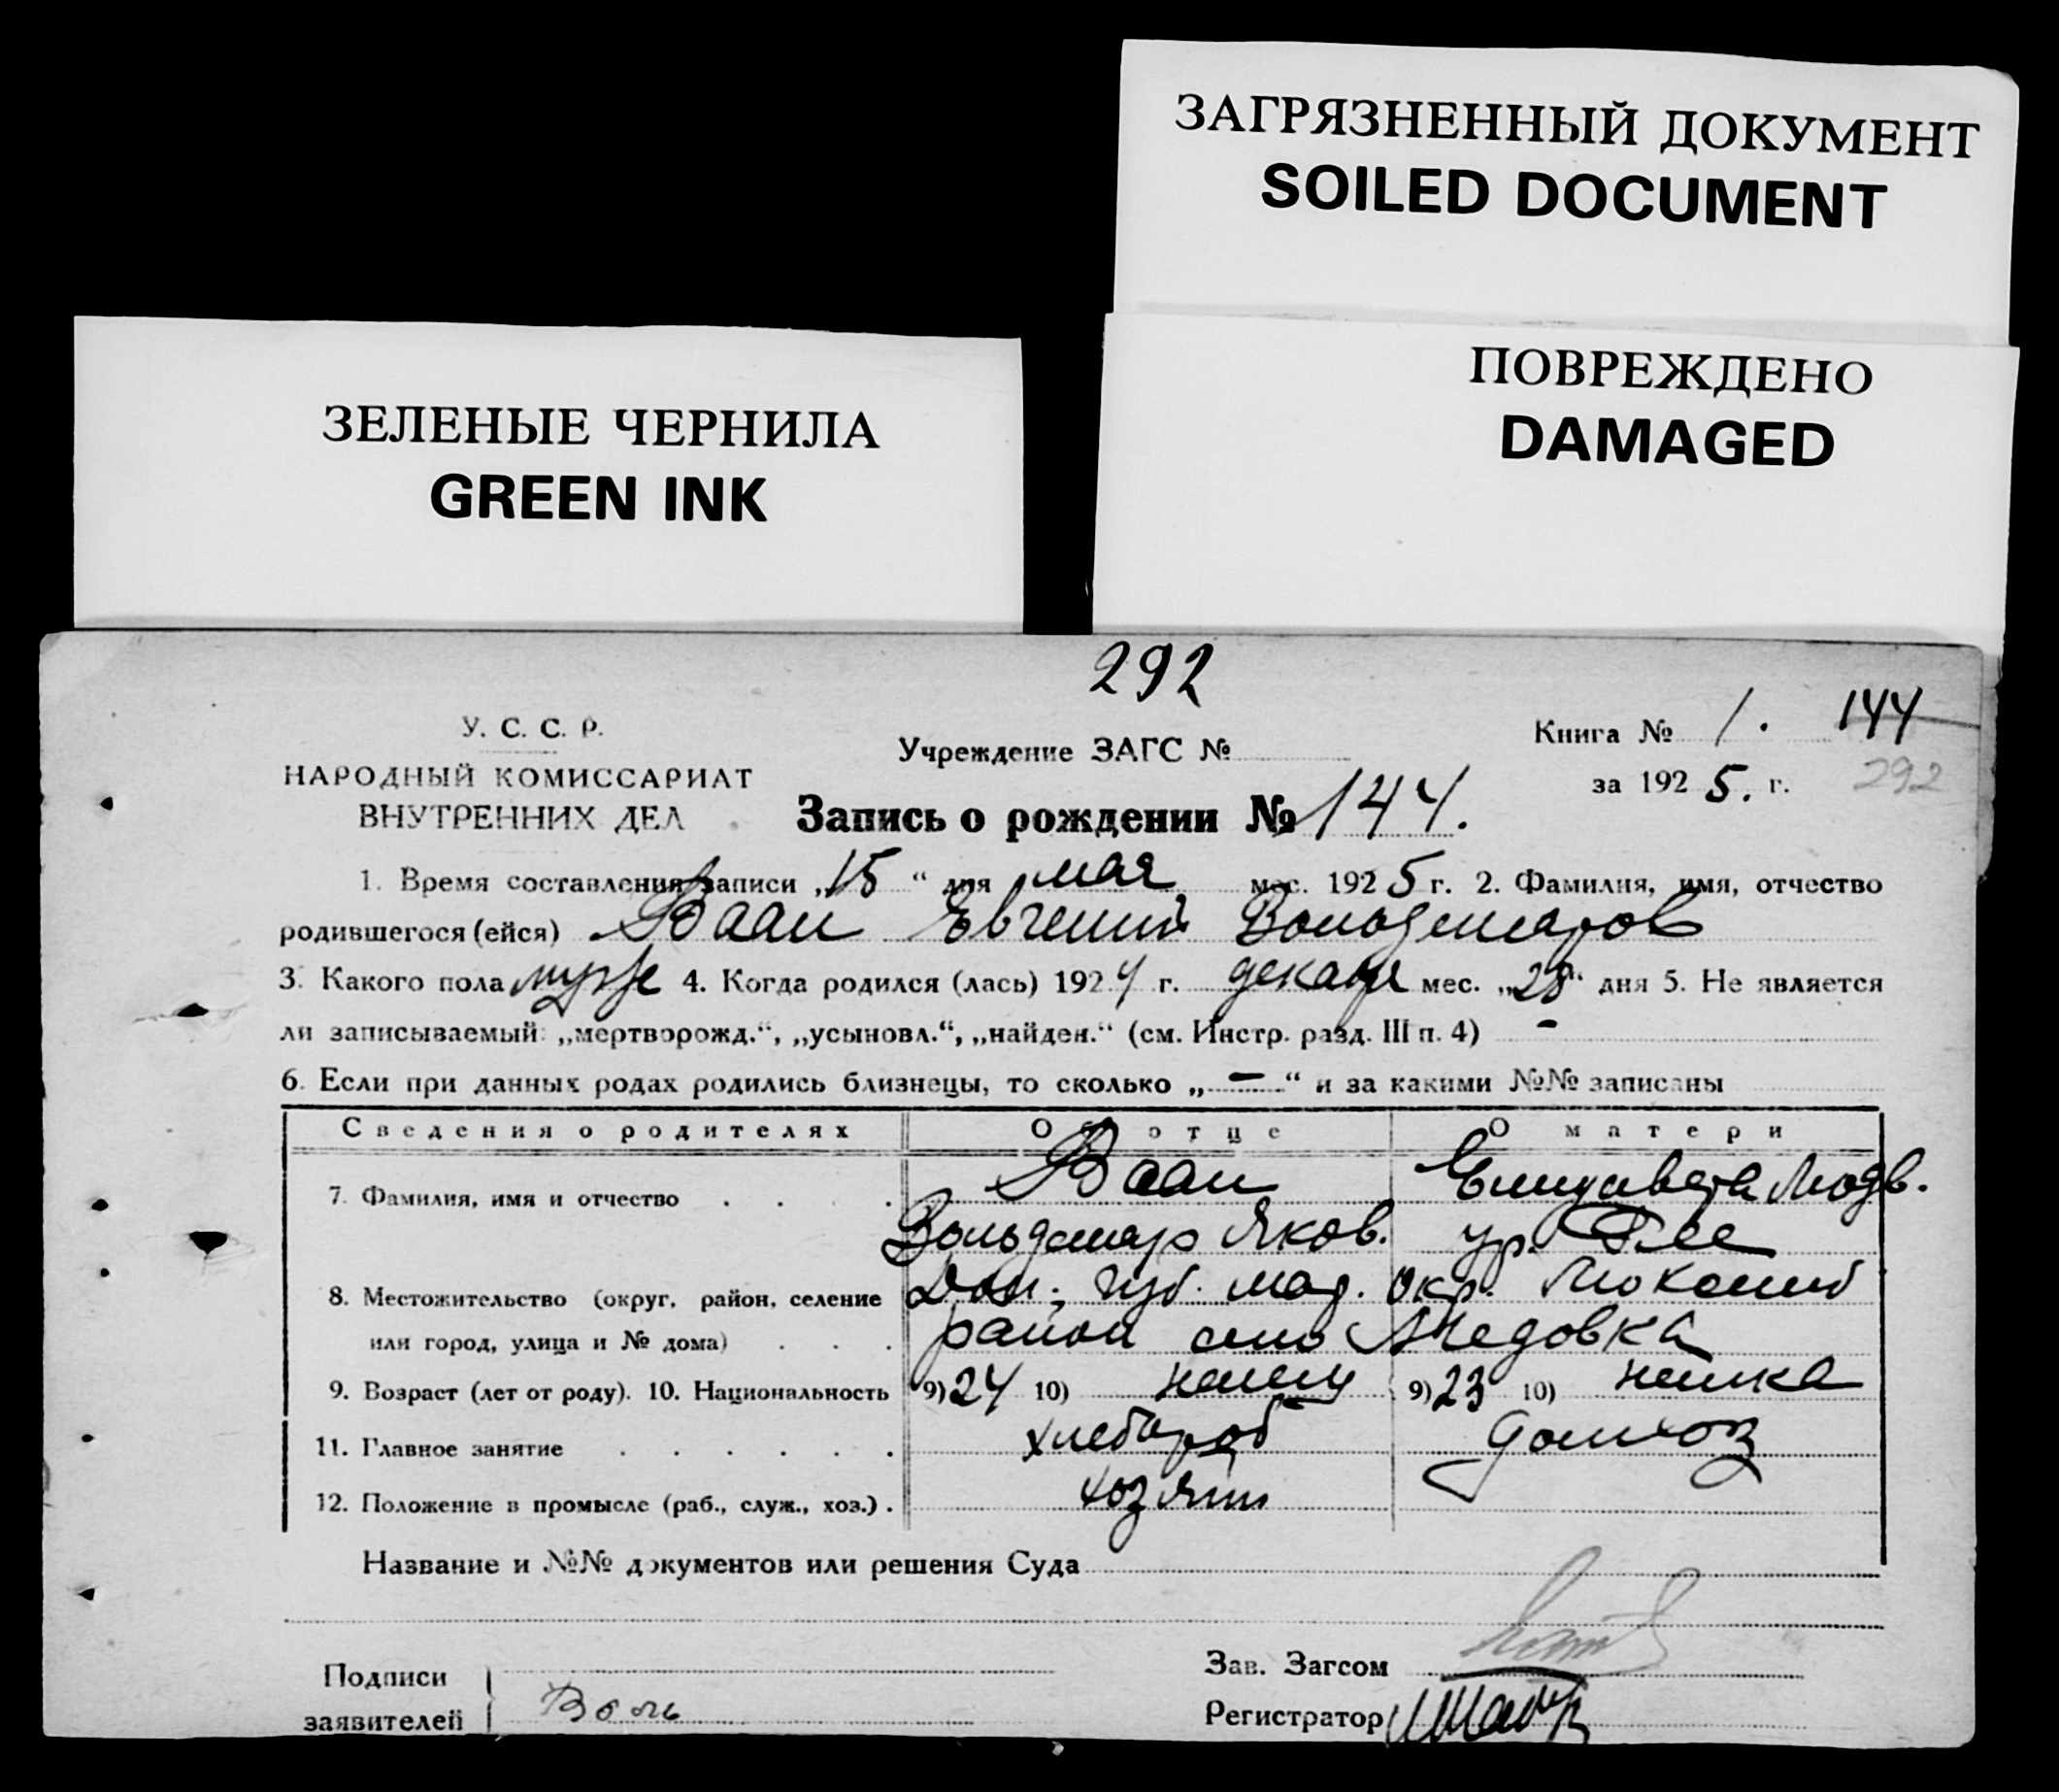 ЗАГРЯЗНЕННЫЙ ДОКУМЕНТ
SOILED DOCUMENT
ПОВРЕЖДЕНО
DAMAGED
ЗЕЛЕНЫЕ ЧЕРНИЛА
GREEN INK
292
У. С. С. Р.
НАРОДНЫЙ КОМИССАРИАТ
ВНУТРЕННИХ ДЕЛ
Учреждение ЗАГС №
Книга № 1. 144
за 1925. г. 292
Запись о рождении № 144.
1. Время составления записи „15“ дня мая мес. 1925 г. 2. Фамилия, имя, отчество
родившегося (ейся) Ваан Евгений Вольдемаров
3. Какого пола муж 4. Когда родился (лась) 1924 г. декабря мес. „28“ дня 5. Не является
ли записываемый: „мертворожд.“, „усыновл.“, „найден.“ (см. Инстр. разд. III п. 4) -
6. Если при данных родах родились близнецы, то сколько „-“ и за какими №№ записаны
Сведения о родителях Об отце О матери
7. Фамилия, имя и отчество Ваан Елизавета Людв.
Вольдемар Яков. ур.
8. Местожительство (округ, район, селение Дон. губ. мар. окр.
или город, улица и № дома) район село Медовка
9. Возраст (лет от роду). 10. Национальность 9) 24 10) немец 9) 23 10) немка
11. Главное занятие хлебороб домхоз
12. Положение в промысле (раб., служ., хоз.) . хозяин
Название и №№ документов или решения Суда
Подписи
заявителей
Зав. Загсом
Регистратор